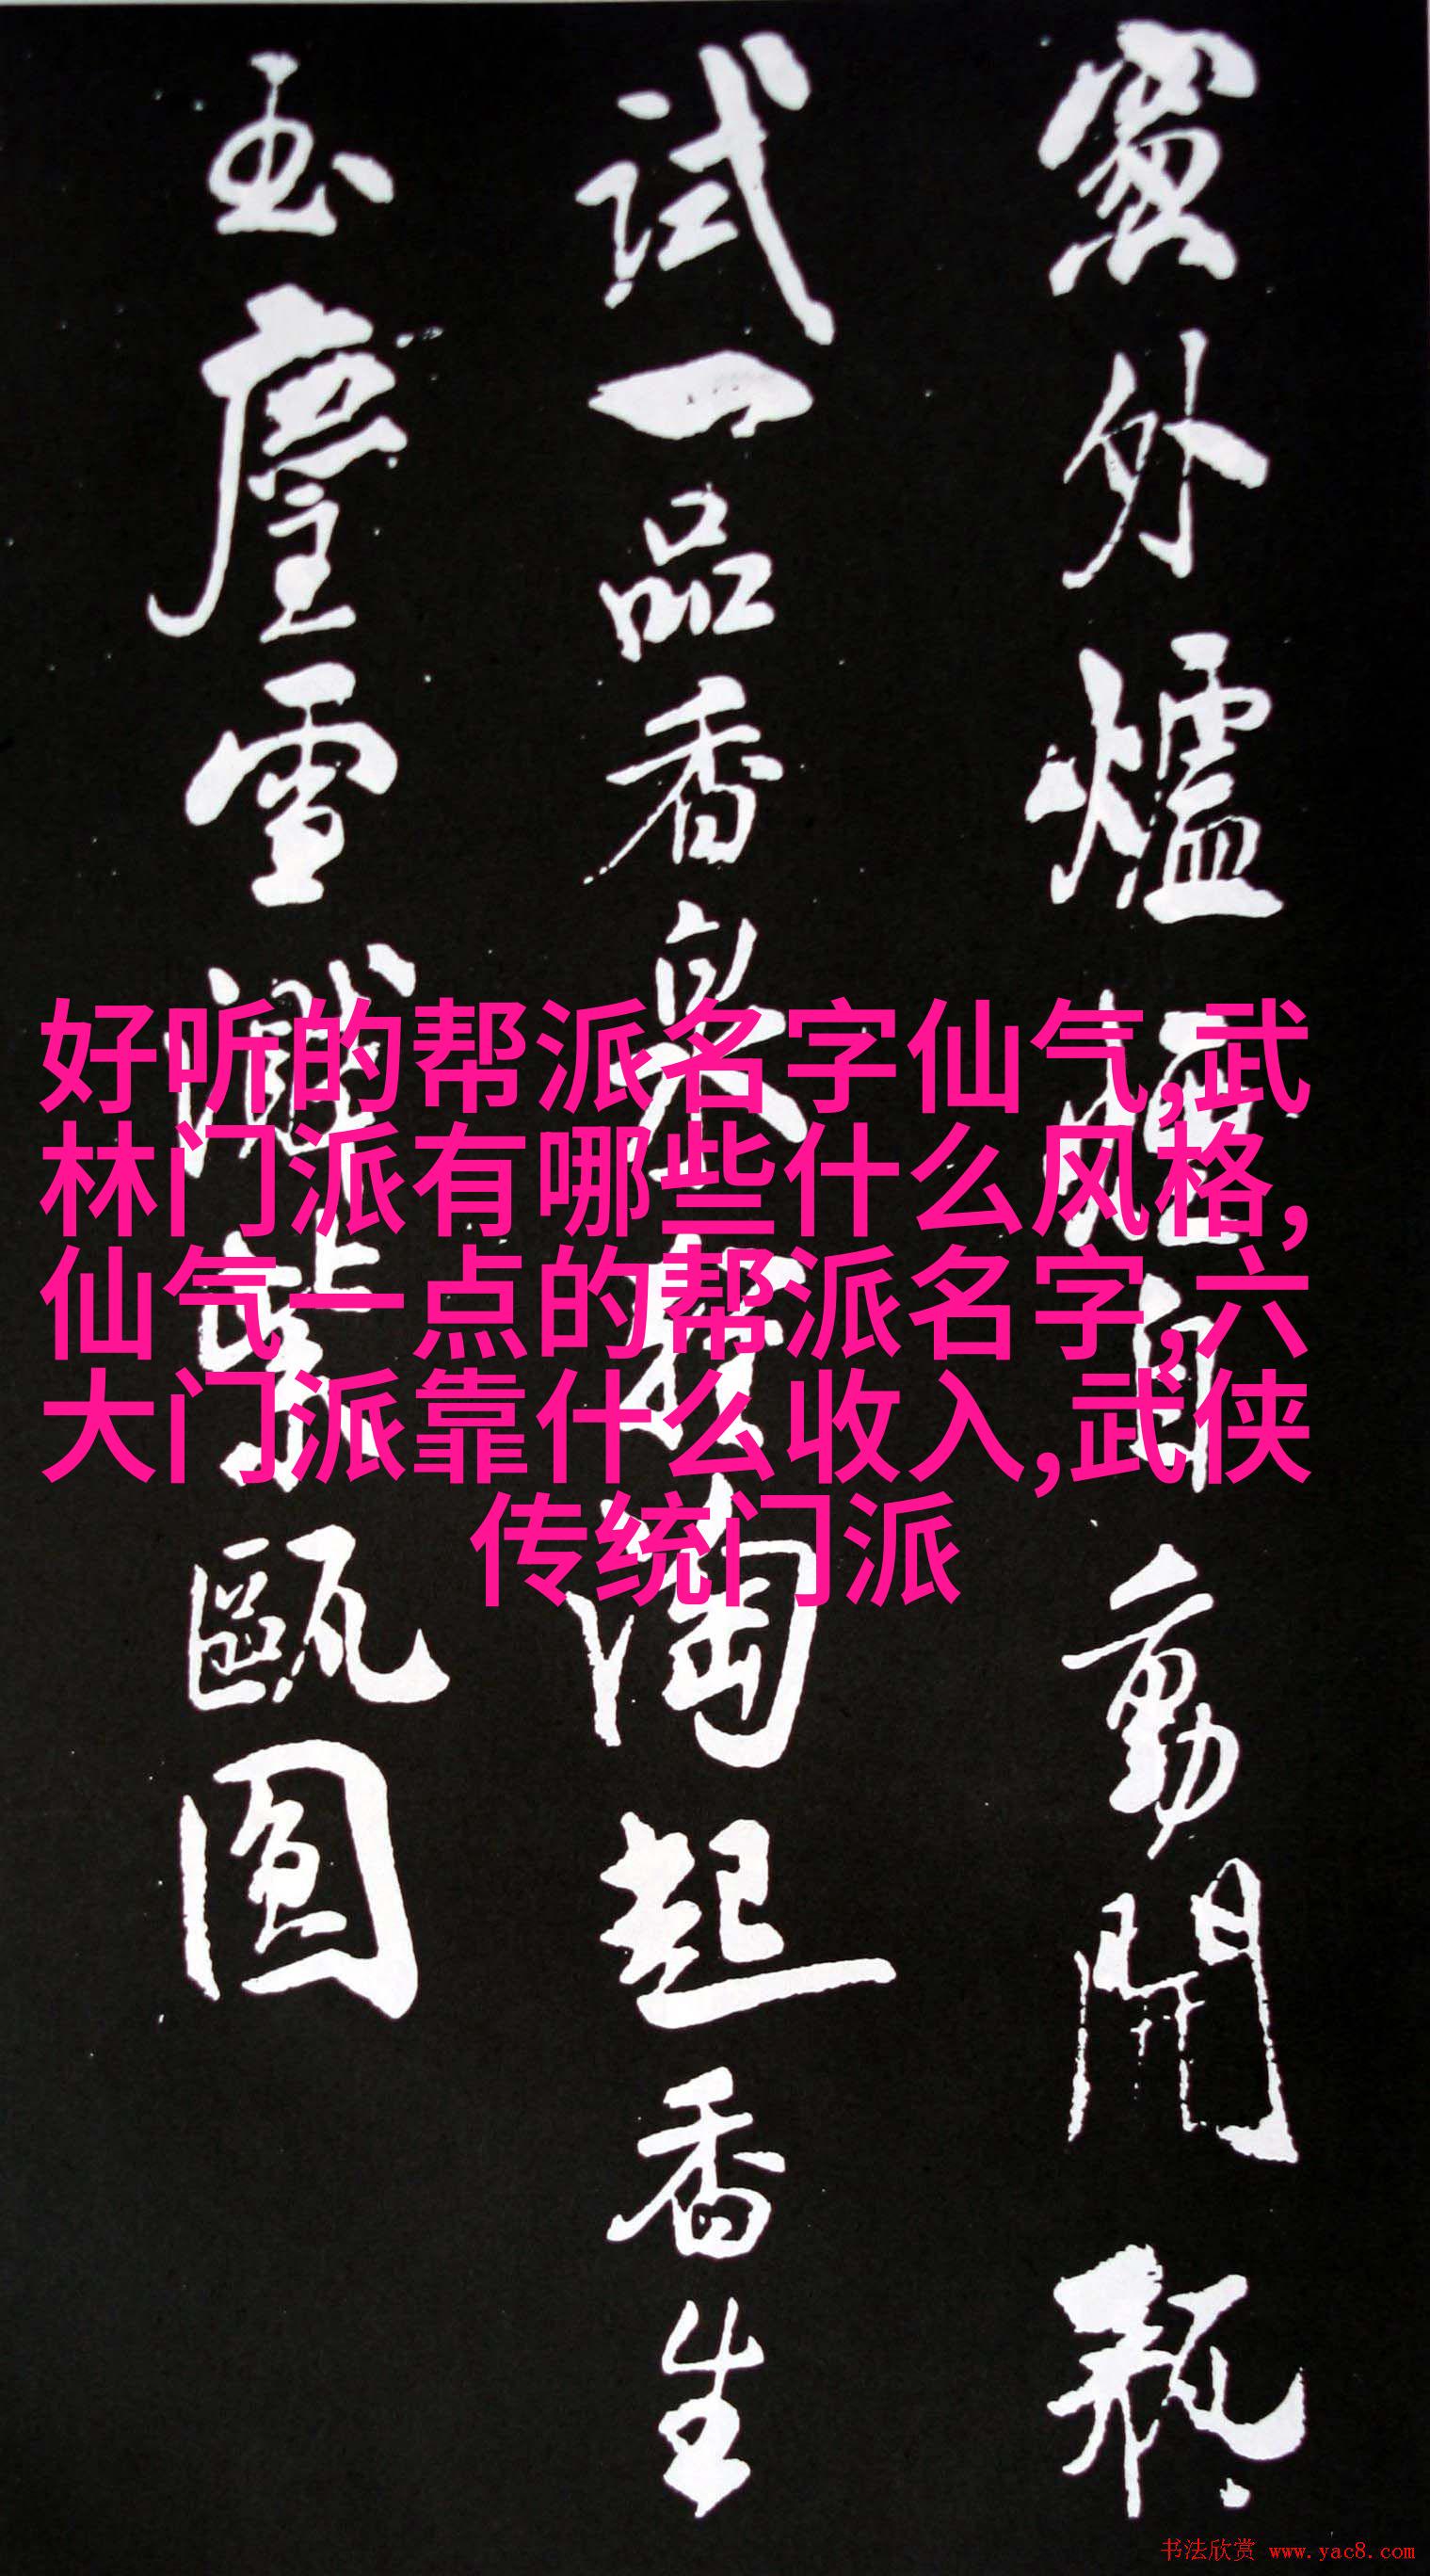 窻外爐煙自動開瓶
試一品香泉輕淘起香生
玉麈雪濺紫甌圓
好听的帮派名字仙气,武
林门派有哪些什么风格,
仙气一点的帮派名字,六
大门派靠什么收入,武侠
传统门派
书法欣赏 www.yac8.com